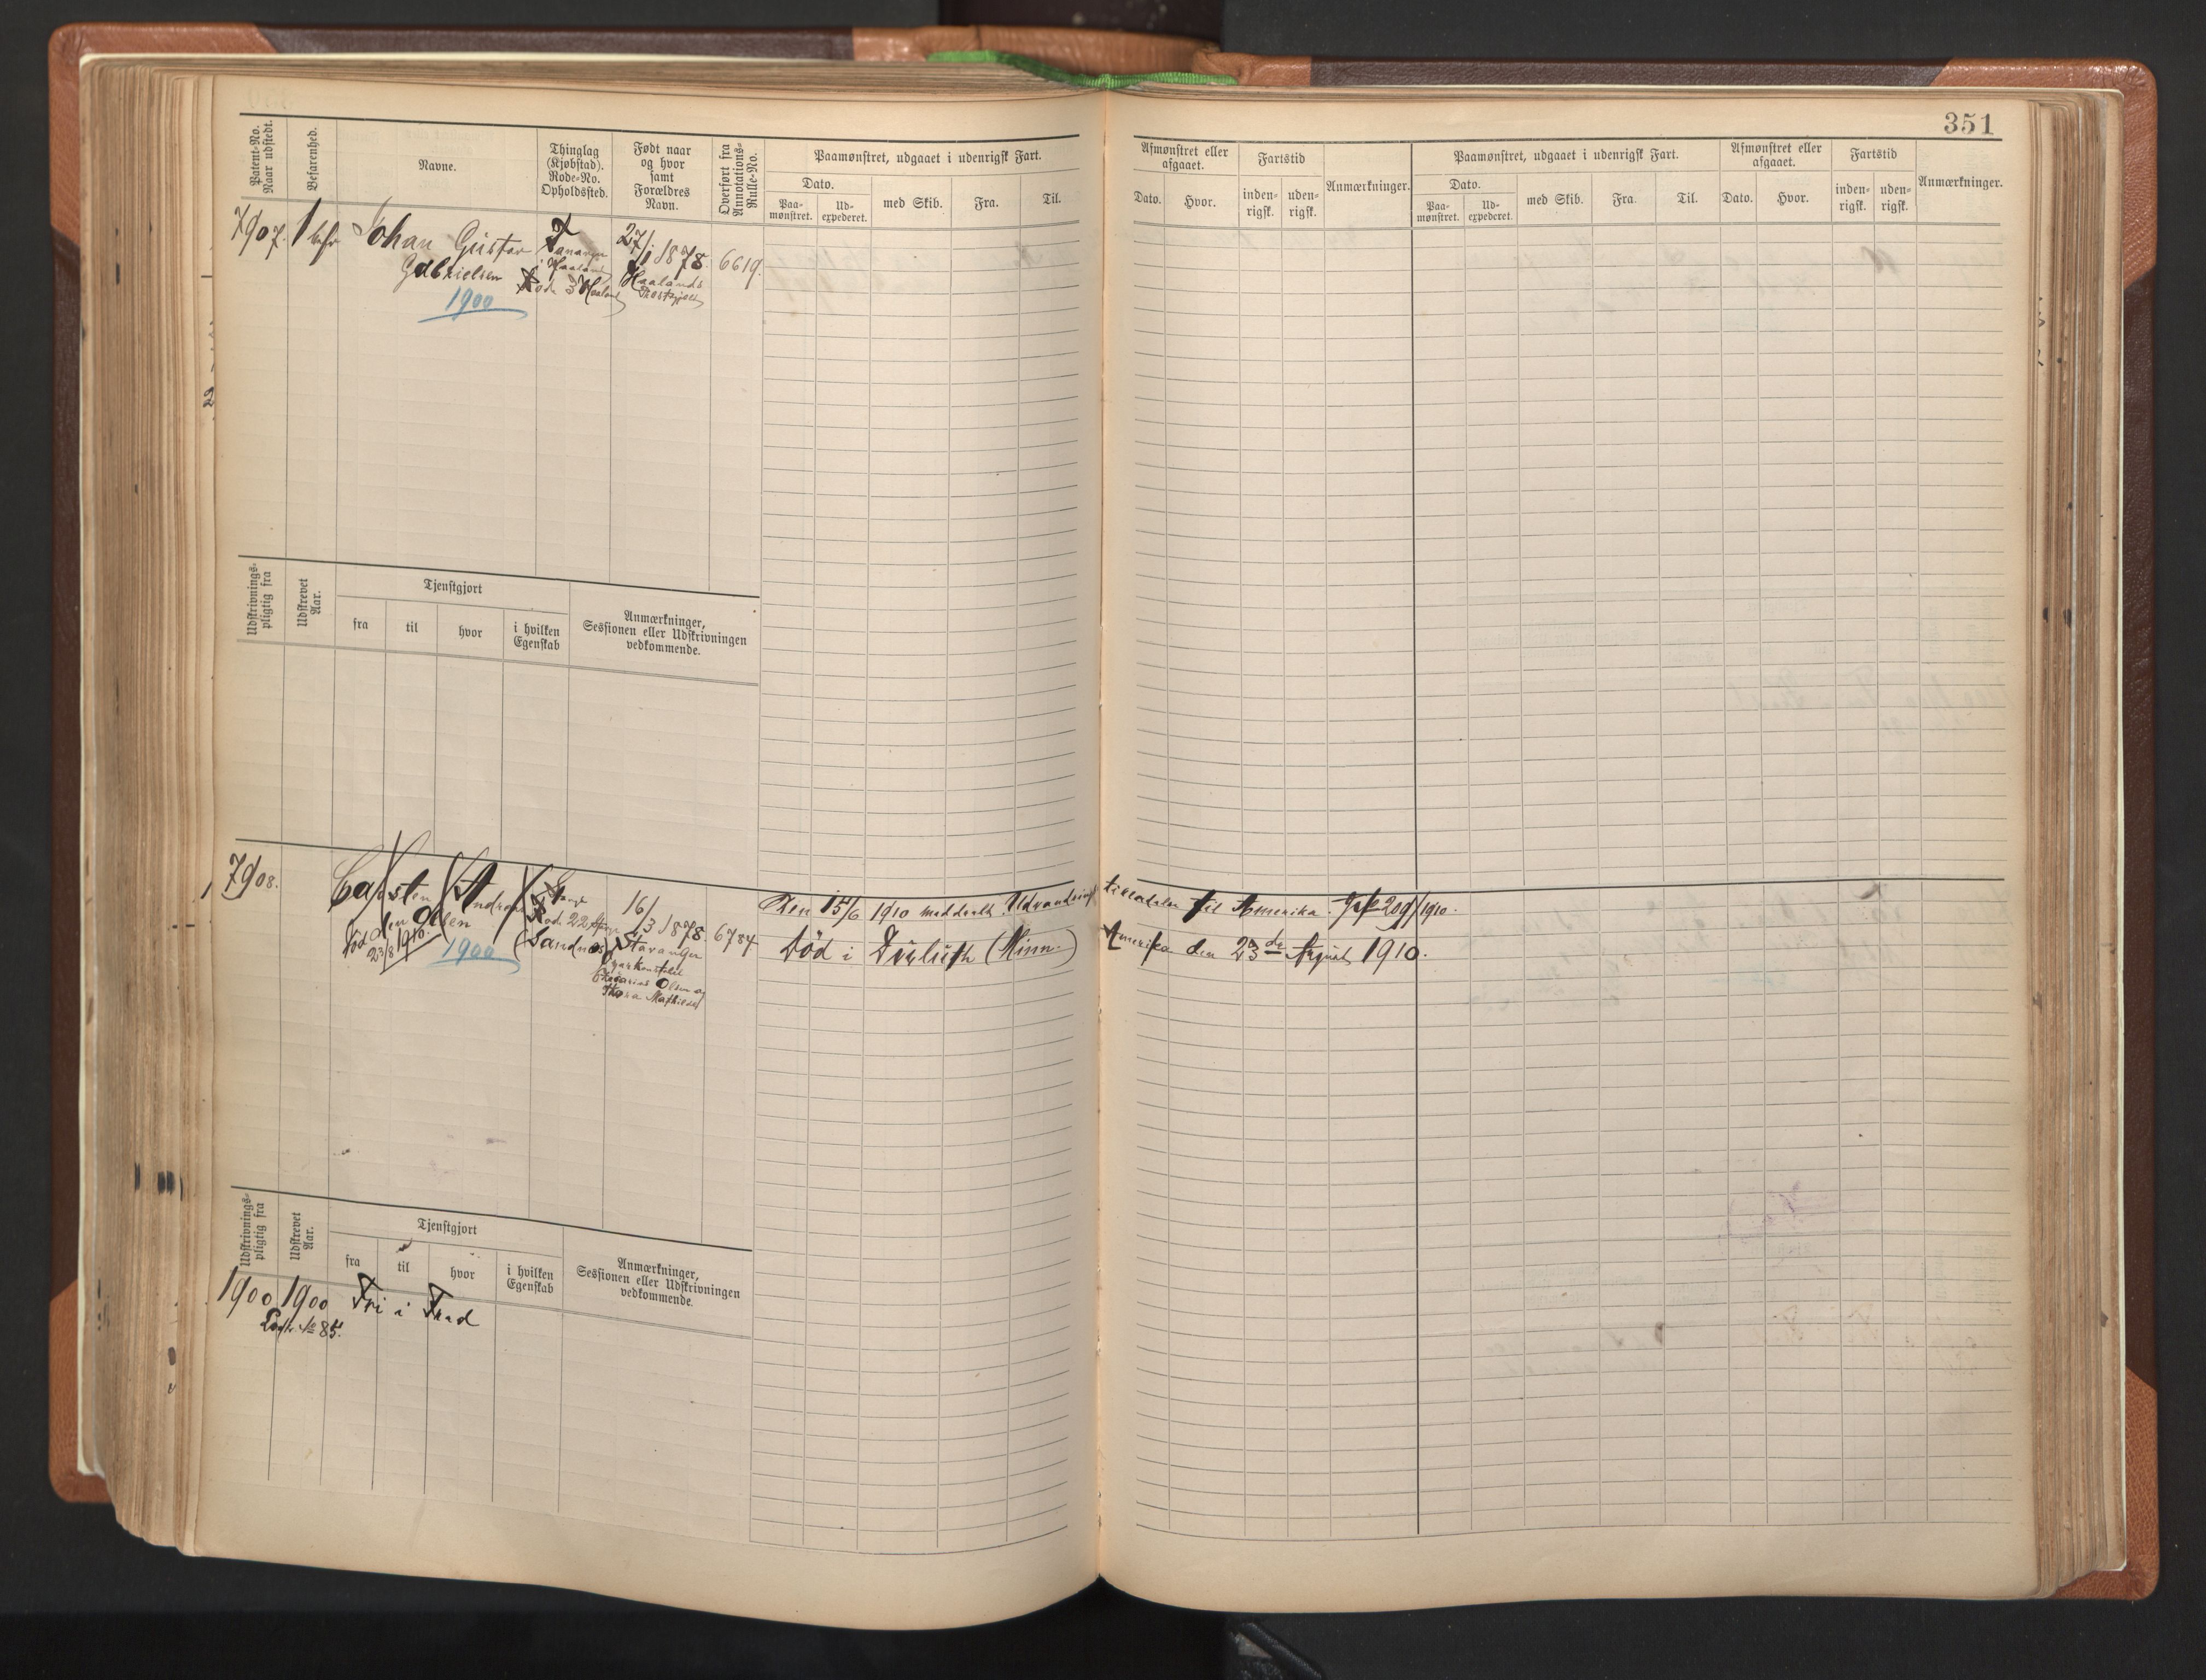 351
Patent-No. Naar udstedt.
Befarenhed.
Navne.
Thinglag (Kjøbstad). Rode-No. Opholdssted.
Født naar og hvor samt Forældres Navn.
Overført fra Annotations-Rulle-No.
Paamønstret, udgaaet i udenrigsk Fart.
Dato.
Paa-mønstret.
Ud-expederet.
med Skib.
Fra.
Til.
Afmønstret eller afgaaet.
Dato.
Hvor.
Fartstid
inden-rigsk.
uden-rigsk.
Anmærkninger.
Paamønstret, udgaaet i udenrigsk Fart.
Dato.
Paa-mønstret.
Ud-expederet.
med Skib.
Fra.
Til.
Afmønstret eller afgaaet.
Dato.
Hvor.
Fartstid
inden-rigsk.
uden-rigsk.
Anmærkninger.
7907.
1 befr
Johan Gustav
Gabrielsen
1900
Tananger
i Haaland
Rode 3 Haaland
27/1 1878.
Haalands
Præstegjeld
6619.
Udskrivnings-pligtig fra
Udskrevet Aar.
Tjenstgjort
fra
til
hvor
i hvilken Egenskab
Anmærkninger, Sessionen eller Udskrivningen vedkommende.
7908.
Carsten Andreas
Olsen
død 23/8 1910.
1900
Rode 22
(Sandnes)
16/3 1878.
Stavanger
Olsen og
Mathilde
6784
Den 15/6 1910 meddealt Udvandrings tilladelse til Amerika. Jrfr 209/1910.
Död i Duluth (Minn.) Amerika den 23de August 1910.
Udskrivnings-pligtig fra
Udskrevet Aar.
Tjenstgjort
fra
til
hvor
i hvilken Egenskab
Anmærkninger, Sessionen eller Udskrivningen vedkommende.
1900
1900
Fri i Fred
Lodtr. No 85.